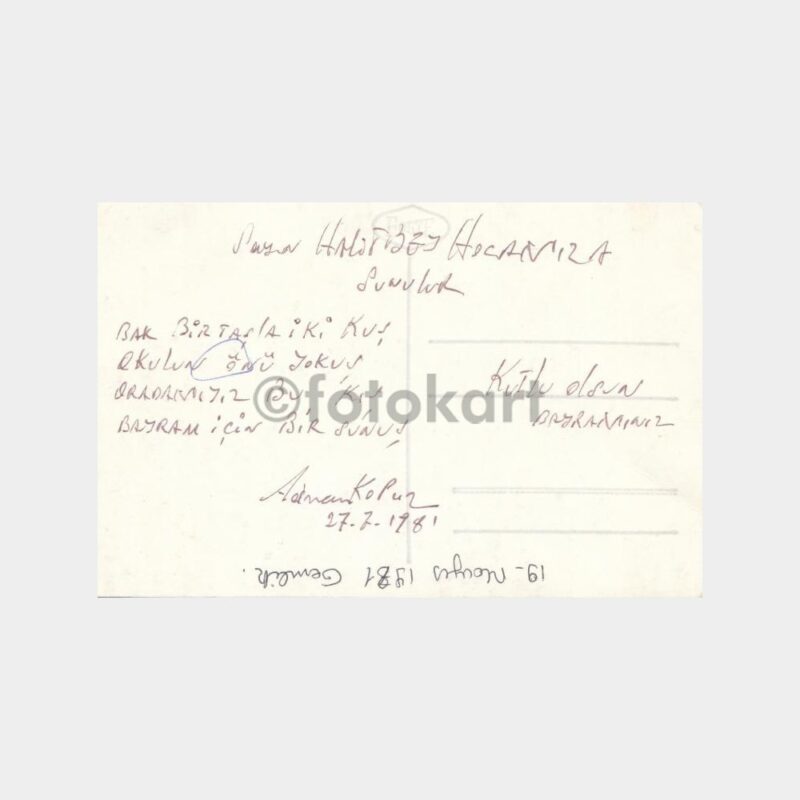 Sayın HALİT BEY HOCAMIZA
Sunulur
BAK BİR TAŞLA İKİ KUŞ
OKULUN ÖNÜ YOKUŞ
BU KIŞ
BAYRAM İÇİN BİR SUNUŞ
Kutlu olsun
BAYRAMINIZ
Adnan
27-7-1981
19-Mayıs 1981 Gemlik.
©fotokart